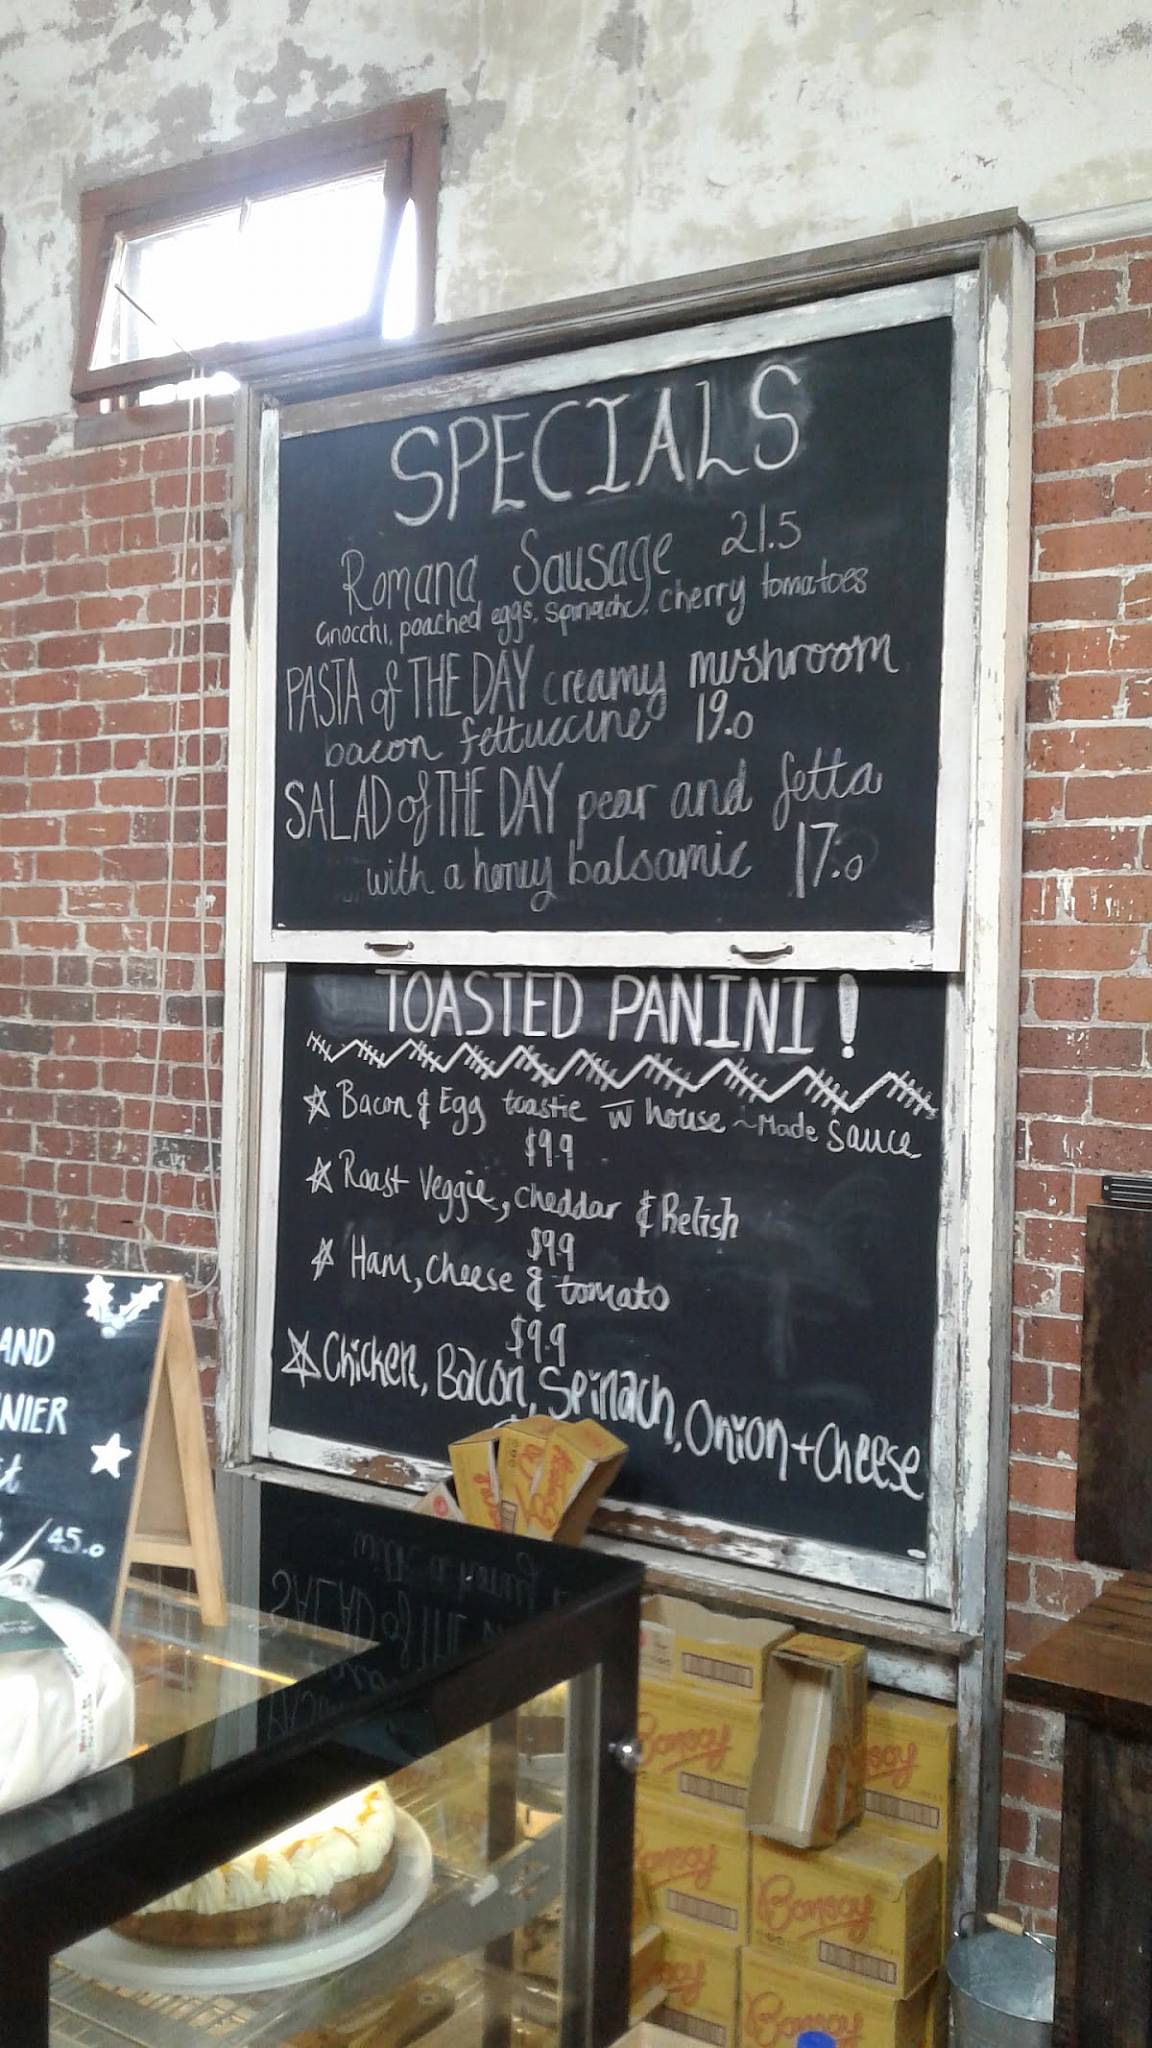 SPECIALS
Romana Sausage 21.5
Gnocchi, poached eggs, spinach, cherry tomatoes
PASTA of THE DAY creamy mushroom
bacon fettuccine 19.0
SALAD of THE DAY pear and fetta
with a honey balsamic 17.0
TOASTED PANINI!
Bacon & Egg toastie w house-Made Sauce
$9.9
Roast Veggie, cheddar & Relish
$9.9
Ham, cheese & tomato
$9.9
Chicken, Bacon, Spinach, Onion + Cheese
AND
NIER
45.0
Bonsoy
Bonsoy
Bonsoy
Bonsoy